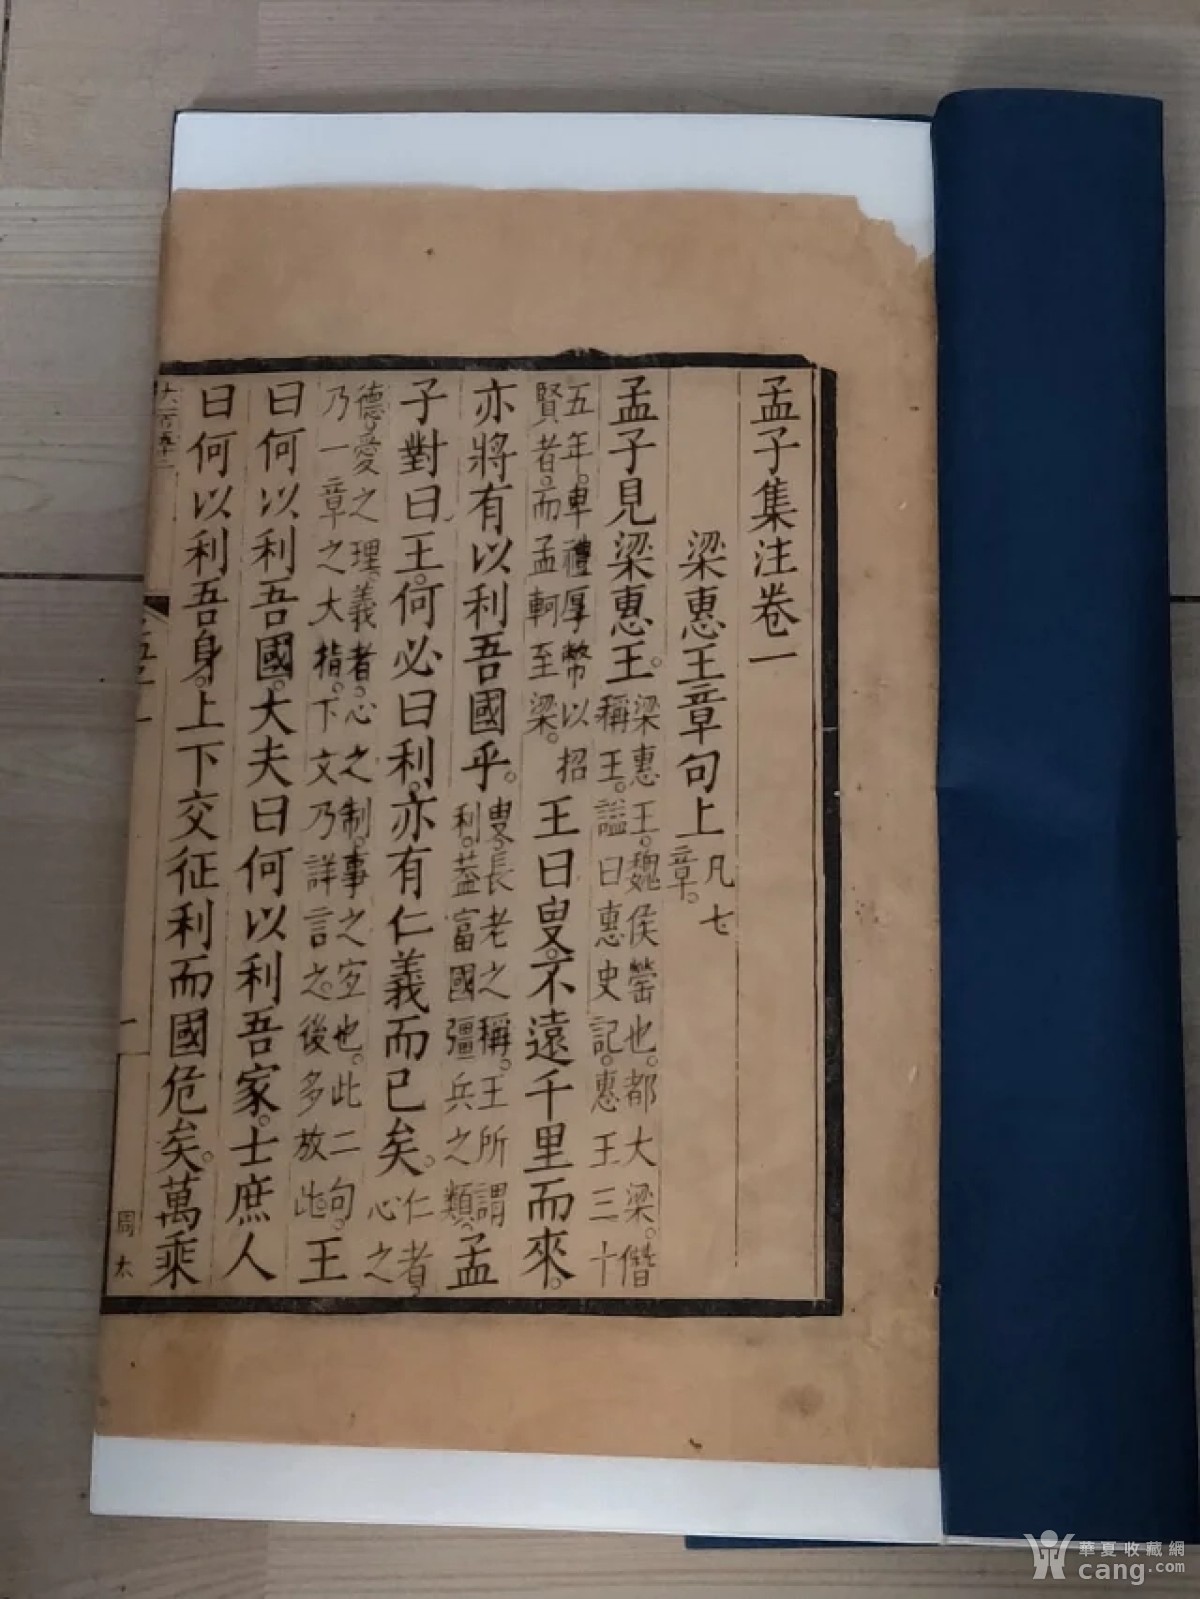 孟子集注卷一
梁惠王章句上凡七章。
孟子見梁惠王。梁惠王。魏侯罃也。都大梁。僭稱王。謚曰惠史記。惠王三十
五年。卑禮厚幣以招賢者。而孟軻至梁。王曰叟。不遠千里而來。
亦將有以利吾國乎。叟。長老之稱。王所謂利。蓋富國彊兵之類。孟
子對曰王。何必曰利。亦有仁義而已矣。仁者。心之
德。愛之理。義者。心之制。事之宜也。此二句。乃一章之大指。下文乃詳言之。後多放此。王
曰何以利吾國。大夫曰何以利吾家。士庶人
曰何以利吾身。上下交征利而國危矣。萬乘
大一百五十二
一
周太
華夏收藏網
cang.com